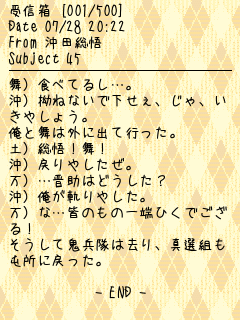 受信箱 [001/500]
Date 07/28 20:22
From 沖田総悟
Subject 45
舞) 食べてるし…。
沖) 拗ねないで下せぇ、じゃ、い
きやしょう。
俺と舞は外に出て行った。
土) 総悟!舞!
沖) 戻りやしたぜ。
万) …晋助はどうした?
沖) 俺が軌りやした。
万) な…皆のもの一端ひくでござ
る!
そうして鬼兵隊は去り、真選組も
屯所に戻った。
- END -